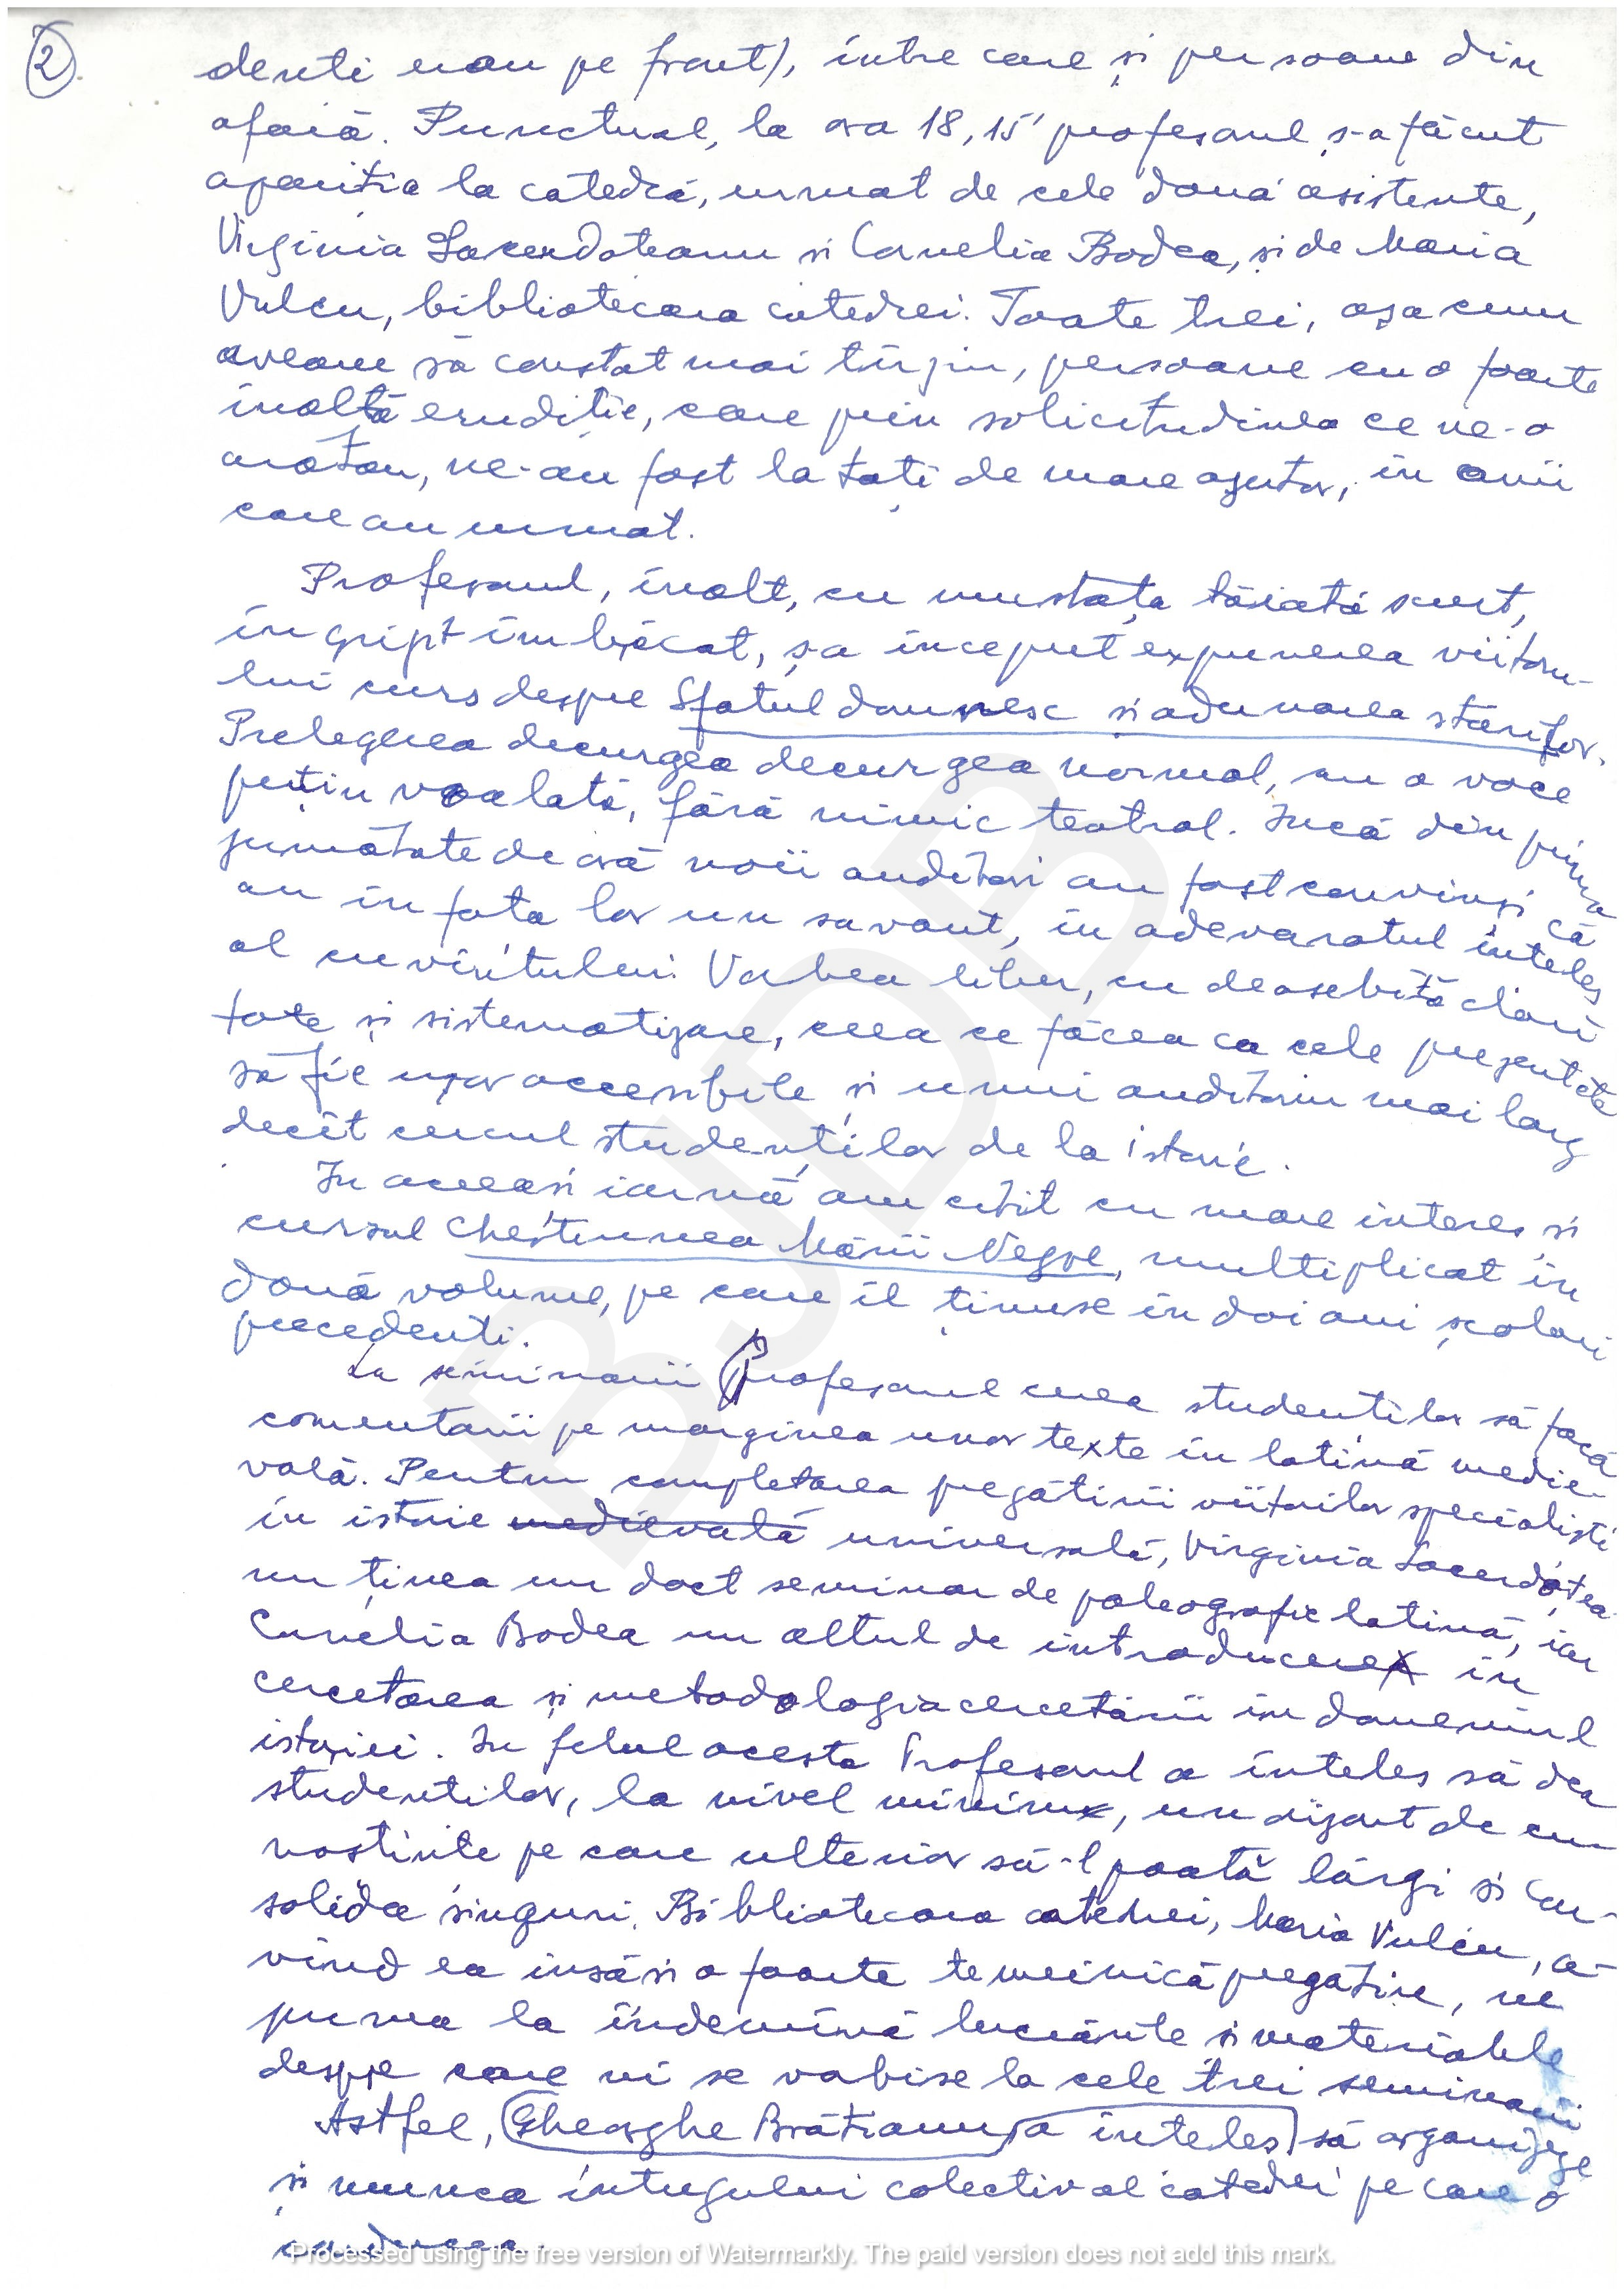 2
denti erau pe front), între care și persoane din
afară. Punctual, la ora 18,15' profesorul ș-a făcut
apariția la catedră, urmat de cele două asistente,
Virginia Sacerdoteanu si Cornelia Bodea, și de Maria
Vulcu, bibliotecara catedrei. Toate trei, așa cum
aveam să constat mai tîrziu, persoane cu o foarte
înaltă erudiție, care prin solicitudinea ce ne-o
arătau, ne-au fost la toți de mare ajutor, în anii
care au urmat.
Profesorul, înalt, cu mustața tăiată scurt,
îngrijit îmbăcat, ș-a început expunerea viitoru-
lui curs despre Sfatul domnesc și adunarea stărilor.
Prelegerea decurgea decurgea normal, cu o voce
puțin voalată, fără nimic teatral. Încă din prima
jumătate de oră noii auditori au fost convinși că
au în fața lor un savant, în adevaratul înteles
al cuvîntului. Vorbea liber, cu deosebită clari
tate și sistematizare, ceea ce făcea ca cele prezentate
să fie ușor accesibile și unui auditoriu mai larg
decît cercul studenților de la istorie.
In aceeași iarnă am citit cu mare interes și
cursul Chestiunea Mării Negre, multiplicat în
două volume, pe care îl ținuse în doi ani școlari
precedenti.
La seminarii Profesorul cerea studentilor să facă
comentarii pe marginea unor texte în latină medie-
vală. Pentru completarea pregătirii viitorilor specialiști
în istorie medievală universală, Virginia Sacerdotea
nu ținea un doct seminar de paleografie latină, iar
Cornelia Bodea un altul de introducere în
cercetarea și metodologia cercetării în domeniul
istoriei. In felul acesta Profesorul a înteles să dea
studentilor, la nivel minim, un bizant de cu
nostinte pe care ulterior să-l poată lărgi si con-
solida singuri. Bibliotecara catedrei, Maria Vulcu, a-
vînd ea însăsi o foarte temeinică pregătire, ne
punea la îndemînă lucrările si materialele
despre care ni se vorbise la cele trei seminarii
Astfel, Gheorghe Brătianu a înteles să organizeze
și munca întregului colectiv al catedrei pe care o
conducea.
BJDB
Processed using the free version of Watermarkly. The paid version does not add this mark.